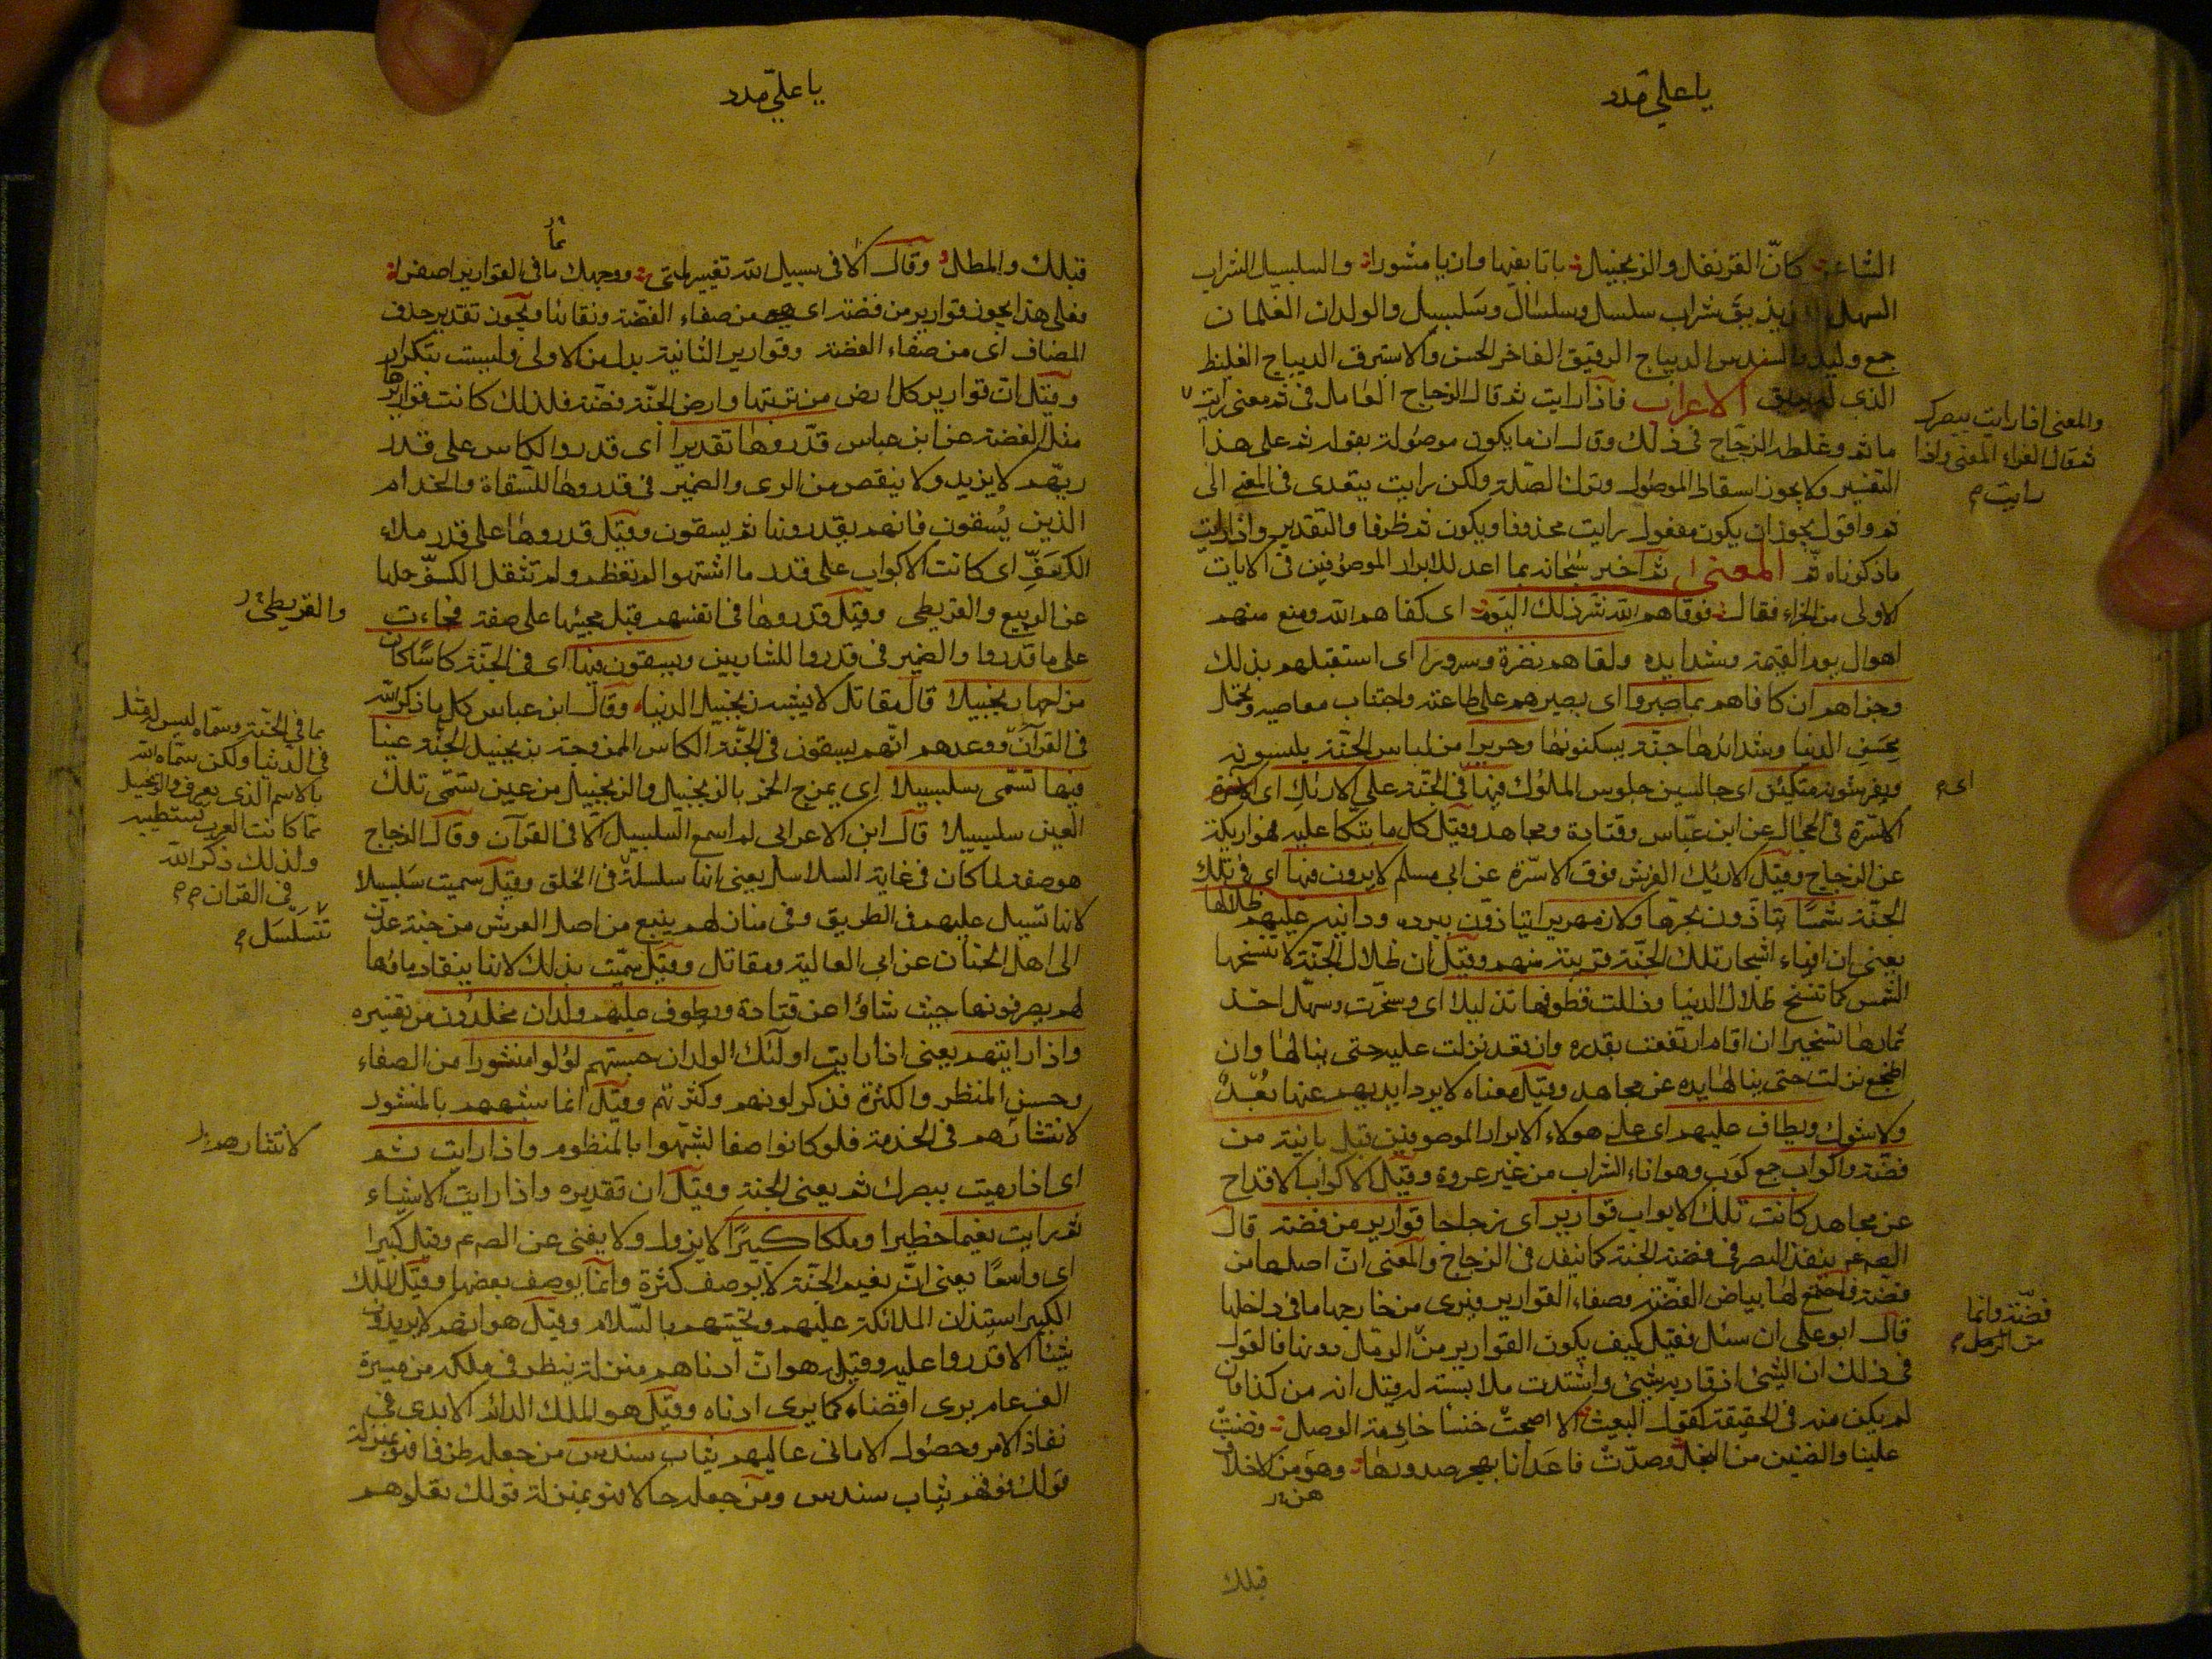 يا علي مدد
الشاعر كانّ القرنفل والزنجبيل باتا بفيها واريا مشورا والسلسبيل الشراب
السهل اللذيذ يقّ شراب سلسل وسلسال وسلسبيل والولدان الغلمان
جمع وليد والسندس الديباج الرقيق الفاخر الحسن والاستبرق الديباج الغليظ
الذي له بريق الاعراب فاذا رايت ثم قال الزجاج العامل في ثم معنى رايت
والمعنى اذا رايت ببصرك
ثم وقال الفراء المعنى واذا
رايت
ما ثم وغلطه الزجاج في ذلك وقال ان ما يكون موصولة بقوله ثم على هذا
التفسير ولا يجوز اسقاط الموصول وترك الصلة ولكن رايت يتعدى في المعنى الى
ثم واقول يجوز ان يكون مفعول رايت محذوفا ويكون ثم ظرفا والتقدير واذا رايت
ما ذكرناه ثم المعنى ثم اخبر سبحانه بما اعد للابرار الموصوفين في الايات
الاولى من الجزاء فقال فوقاهم الله شر ذلك اليوم اى كفاهم الله ومنع منهم
اهوال يوم القيمة وشدايده ولقاهم نضرة وسرورا اى استقبلهم بذلك
وجزاهم اى كافاهم بما صبروا اى بصبرهم على طاعته واجتناب معاصيه وتحمل
محن الدنيا وشدائدها جنّة يسكنونها وحريرا من لباس الجنّة يلبسونه
ويفرشونه متكئين اى جالسين جلوس الملوك فيها في الجنّة على الارائك اى
اى
الاسّرة في الحجال عن ابن عبّاس وقتادة ومجاهد وقيل كل ما يتكا عليه فهو اريكة
عن الزجاج وقيل الارئيك الفرش فوق الاسّرة عن ابى مسلم لا يرون فيها اى في تلك
الجنّة شمسًا يتاذّون بحرّها ولا زمهريرا يتاذّون ببرده ودانية عليهم ظلالها
يعنى ان افياء اشجار تلك الجنّة قريبة منهم وقيل ان ظلال الجنّة لا تنسخها
الشمس كما تنسخ ظلال الدنيا وذللت قطوفها تذليلا اى وسخّرت وسهّل اخذ
ثمارها تسخيرا ان قام ارتفعت بقدره وان قعد نزلت عليه حتى ينالها وان
اضطجع نزلت حتى ينالها يده عن مجاهد وقيل معناه لا يرد ايديهم عنها بُعدٌ
ولا شوك ويطاف عليهم اى على هولاء الابرار الموصوفين قبل بانية من
فضّة واكواب جمع كوب وهو اناء الشراب من غير عروة وقيل الاكواب الاقداح
عن مجاهد كانت تلك الابواب قوارير اى زجاجا قوارير من فضة قال
الصمّ ينفذ البصر في فضة الجنة كما ينفذ في الزجاج والمعنى انّ اصلها من
فضّة فاجتمع لها بياض الفضّة وصفاء القوارير فيرى من خارجها ما في داخلها
قال ابو على ان سئل فقيل كيف يكون القوارير من الرمال دونها فالقول
فضّة وانما
من الرمل
في ذلك ان الشئ اذ قاربه شئ واشتدت ملابسته له قيل انه من كذا وان
لم يكن منه في الحقيقة كقول البعيث الا اصبحت خنسا خاذمة الوصل وضنّت
علينا والضنين من البخل وصدّت فاعدانا بهجر صدودها وهن من الاخلاف
هن
قبلك
يا علي مدد
قبلك والمطل وقال الا في سبيل الله تغيير لمتى ووجهك مما في القوارير اصفرا
فعلى هذا يجوز قوارير من فضة اى هى من صفاء الفضّة ونقائها ويجوز تقدير حذف
المضاف اى من صفاء الفضة وقوارير الثانية بدل من الاولى وليست بتكرار
وقيل ان قوارير كل ارض من تربتها وارض الجنّة فضّة فلذلك كانت قواريرها
مثل الفضة عن ابن عباس قدّروها تقديرا اى قدروا الكاس على قدر
ريّهم لا يزيد ولا ينقص من الرى والضمير في قدروها للسّقاة والخدام
الذين يُسقون فانهم يقدرونها ثم يسقون وقيل قدروها على قدر ملاء
الكف اى كانت الاكواب على قدر ما اشتهوا لم تعظم ولم تثقل الكفّ حملها
عن الربيع والقرظى وقيل قدروها في انفسهم قبل مجيئها على صفة فجاءت
والقريظى
على ما قدروا والضمير في قدروا للشاربين ويسقون فيها اى في الجنّة كاسًا كان
مزاجها زنجبيلا قال مقاتل لا يشبه زنجبيل الدنيا وقال ابن عباس كل ما ذكر الله
مما في الجنّة وسمّاه ليس له مثل
في الدنيا ولكن سمّاه الله
بالاسم الذى يعرف والزنجبيل
مما كانت العرب تستطيبه
ولذلك ذكر الله
في القران
في القرآن ووعدهم انهم يسقون في الجنّة الكاس الممزوجة بزنجبيل الجنّة عينا
فيها تسمّى سلسبيلا اى يمزج الخمر بالزنجبيل والزنجبيل من عين تسمّى تلك
العين سلسبيلا قال ابن الاعرابى لم اسمع السلسبيل الّا في القرآن وقال الزجاج
هو صفة لما كان في غاية السلاسة يعنى انها سلسلة في الحلق وقيل سميت سلسبيلا
تتسلسل
لانها تسيل عليهم في الطريق وفى منازلهم ينبع من اصل العرش من جنة عدن
الى اهل الجنان عن ابى العالية ومقاتل وقيل سمّيت بذلك لانها ينقاد ماؤها
لهم يصرفونها حيث شاؤا عن قتادة ويطوف عليهم ولدان مخلدون مر تفسيره
واذا رايتهم يعنى اذا رايت اولئك الولدان حسبتهم لؤلؤا منثورا من الصفاء
وحسن المنظر والكثرة فذكر لونهم وكثرتهم وقيل انما شبههم بالمنثور
لانتشارهم في الخدمة فلو كانوا صفا لشبّهوا بالمنظوم واذا رايت ثم
لانتثارهم
اى اذا رميت ببصرك ثم يعنى الجنة وقيل ان تقديره واذا رايت الاشياء
ثم رايت نعيما خطيرا وملكا كبيرًا لا يزول ولا يفنى عن الصم وقيل كبيرا
اى واسعًا يعنى انّ نعيم الجنّة لا يوصف كثرة وانما يوصف بعضها وقيل الملك
الكبير استيذان الملائكة عليهم وتحيتهم بالسّلام وقيل هو انهم لا يريدون
شيئا الا قدروا عليه وقيل هو انّ ادناهم منزلة ينظر في ملكه من مسيرة
الف عام يرى اقصاه كما يرى ادناه وقيل هو الملك الدائم الابدى في
نفاذ الامر وحصول الامانى عاليهم ثياب سندس من جعله ظرفا فهو بمنزلة
قولك فوقهم ثياب سندس ومن جعله حالا فهو بمنزلة قولك يعلوهم